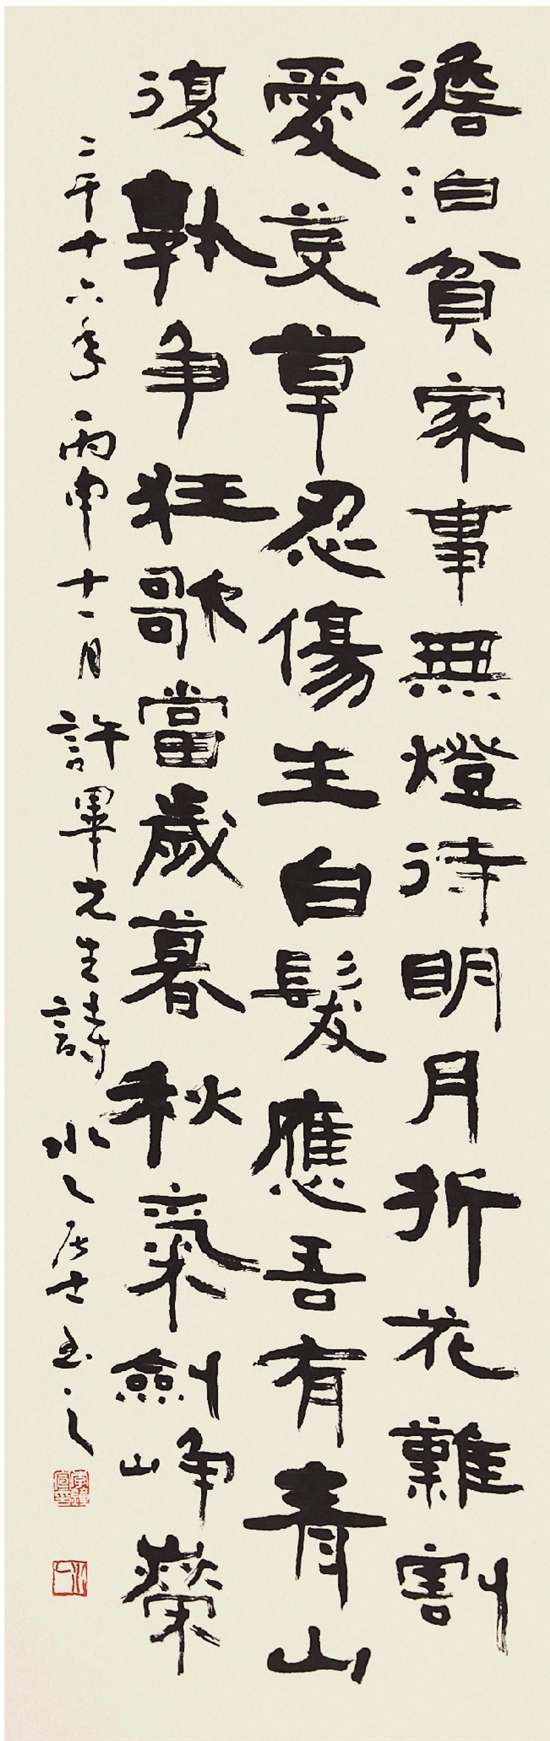 澹泊貧家事無燈待明月折花難割
愛芟草忍傷生白髮應吾有青山
復孰争狂歌當歲暮秋氣劍崢榮
二千十六年丙申十一月許畢先生詩水乙居士書之